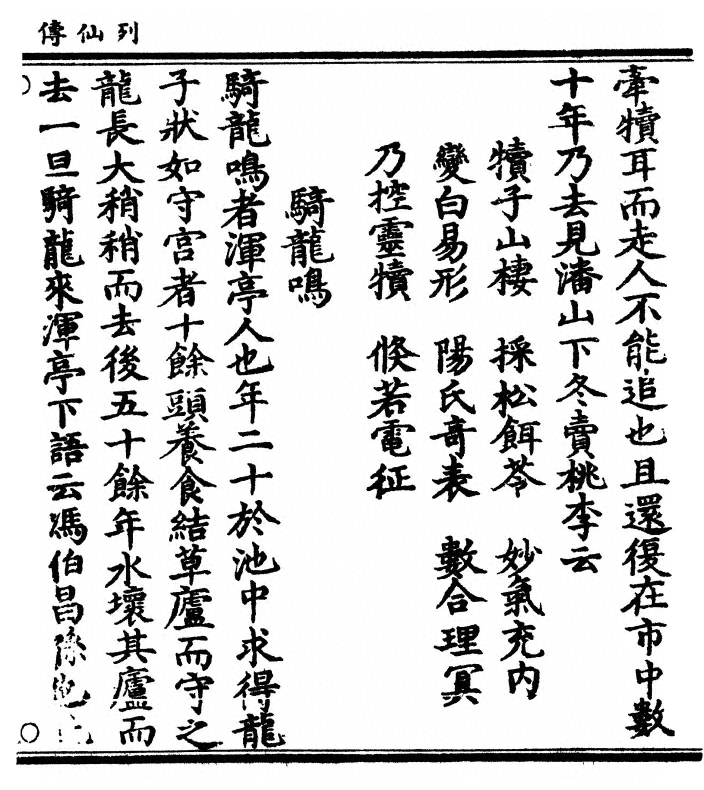 列仙傳
牽犢耳而走人不能追也且還復在市中數
十年乃去見潘山下冬賣桃李云
犢子山棲 採松餌苓 妙氣充内
變白易形 陽氏奇表 數合理冥
乃控靈犢 倐若電征
騎龍鳴
騎龍鳴者渾亭人也年二十於池中求得龍
子狀如守宮者十餘頭養食結草廬而守之
龍長大稍稍而去後五十餘年水壞其廬而
去一旦騎龍來渾亭下語云馮伯昌孫也